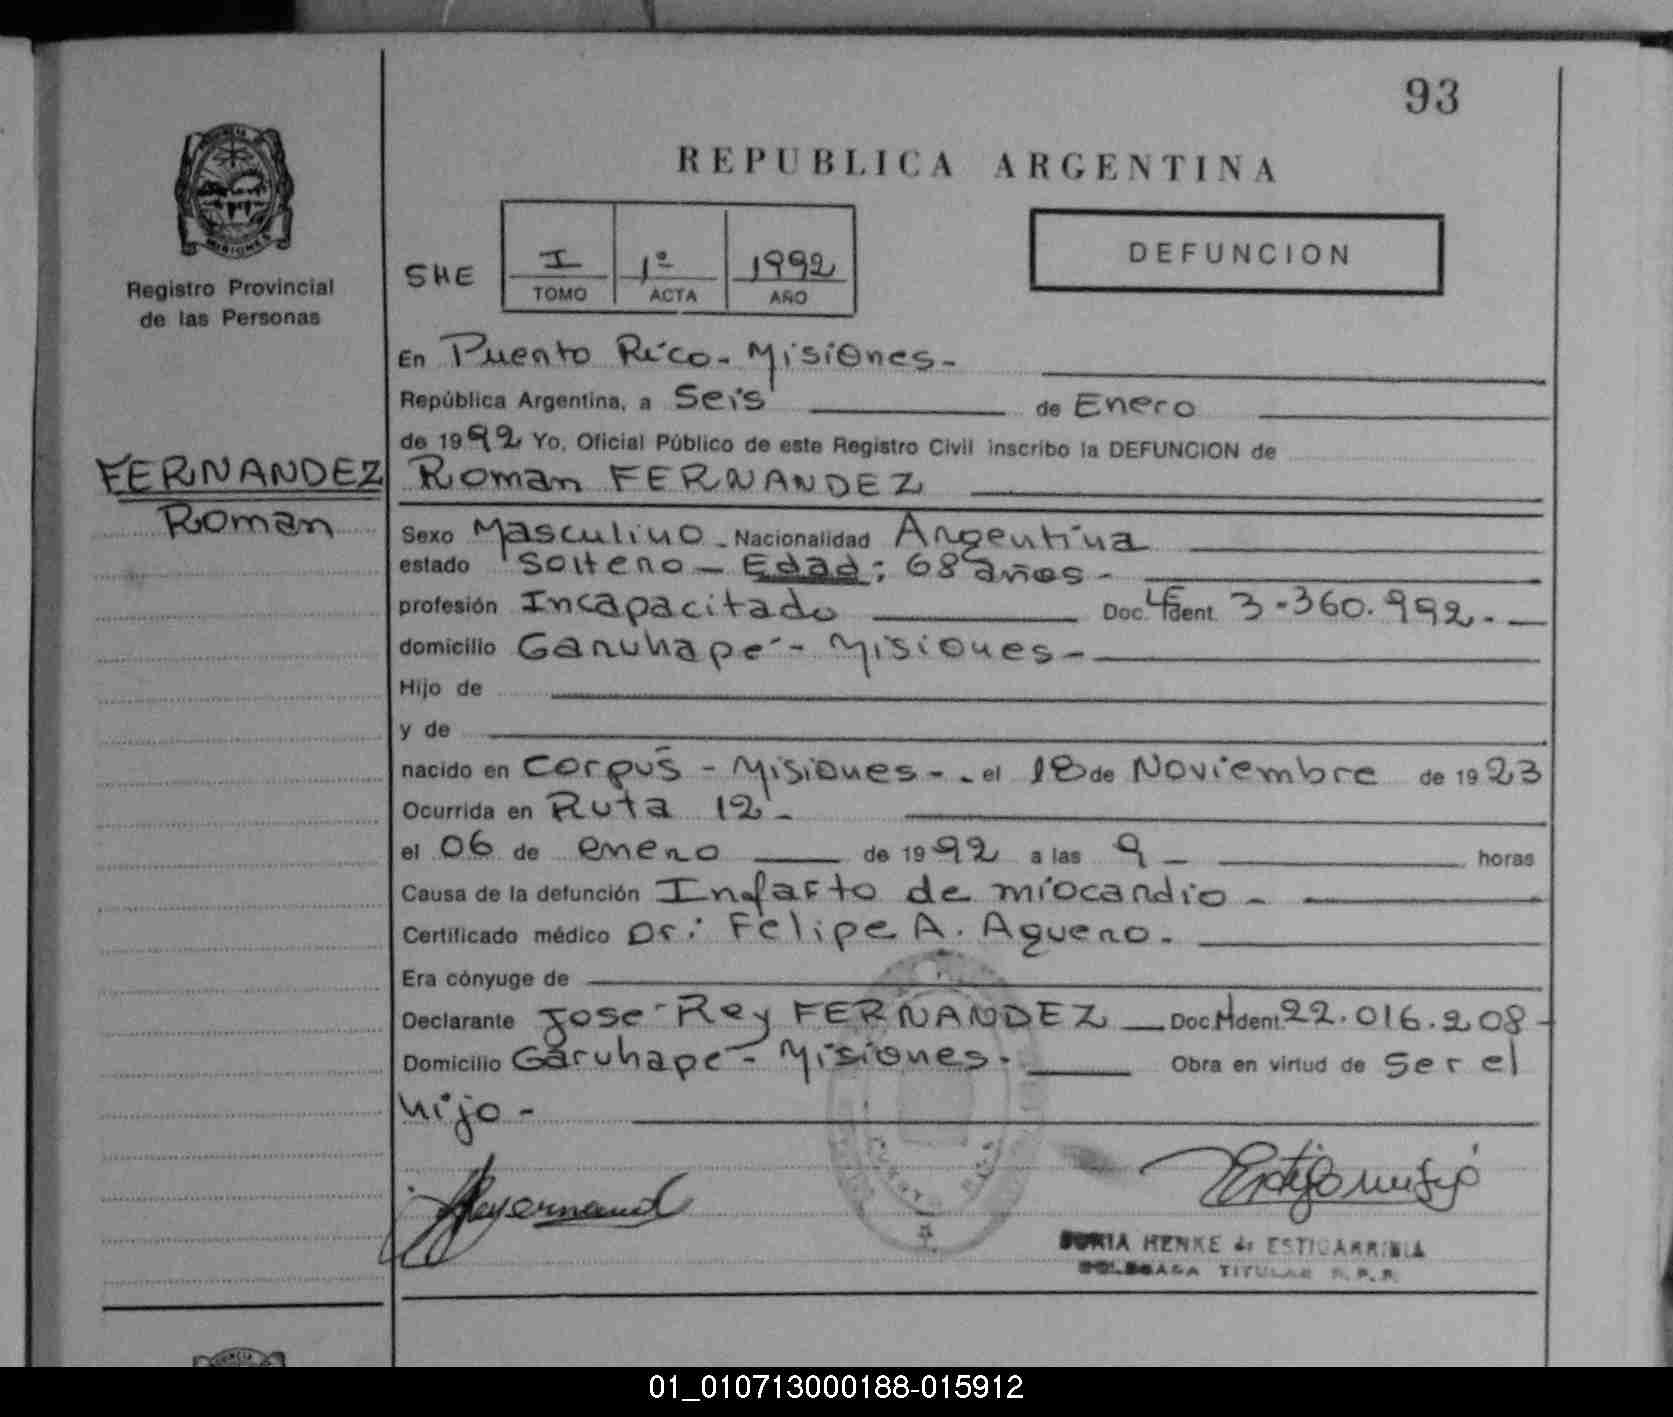 93
REPUBLICA ARGENTINA
SHE I 1º 1992
TOMO ACTA AÑO
DEFUNCION
MISIONES
Registro Provincial
de las Personas
En Puerto Rico - Misiones -
República Argentina, a Seis de Enero
de 1992 Yo, Oficial Público de este Registro Civil inscribo la DEFUNCION de
FERNANDEZ
Roman
Roman FERNANDEZ
Sexo Masculino - Nacionalidad Argentina
estado Soltero - Edad: 68 años -
profesión Incapacitado Doc. LE Ident. 3.360.992. -
domicilio Garuhapé - Misiones -
Hijo de
y de
nacido en Corpus - Misiones - el 18 de Noviembre de 1923
Ocurrida en Ruta 12 -
el 06 de enero de 1992 a las 9 - horas
Causa de la defunción Infarto de miocardio -
Certificado médico Dr: Felipe A. Aguero.
Era cónyuge de
Declarante José Rey FERNANDEZ Doc. Ident. 22.016.208 -
Domicilio Garuhapé - Misiones. Obra en virtud de Ser el
hijo -
HENKE de ESTIGARRIBIA
DELEGADA TITULAR R.P.P.
01_010713000188-015912